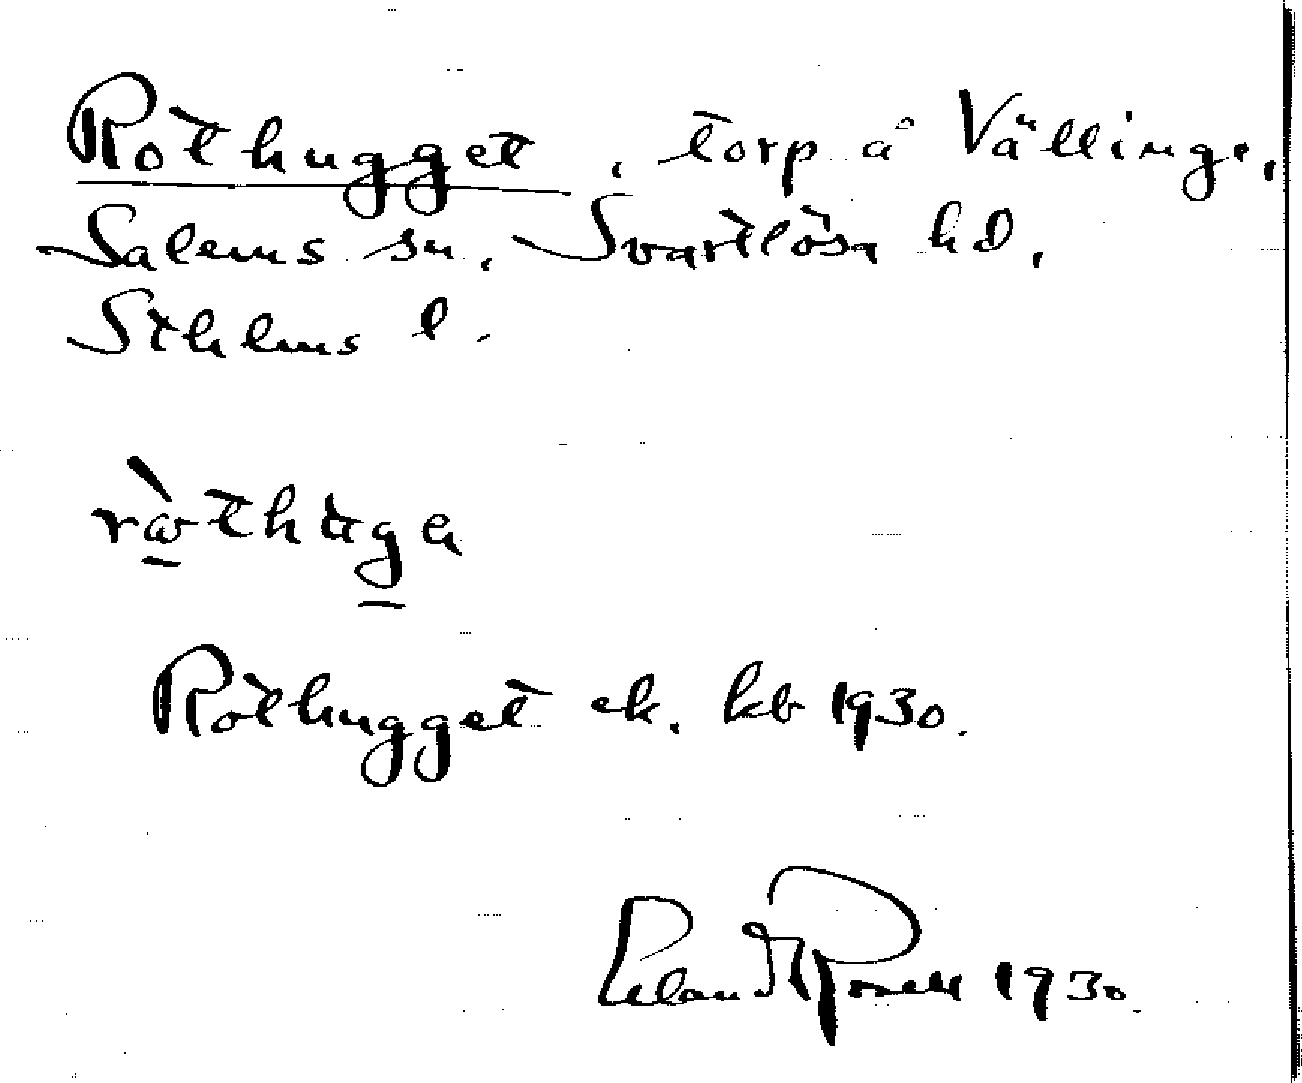 Rothugget, torp å Vällinge,
Salems sn, Svartlösa hd,
Sthlms l.
Rothugget ek. kb 1930.
1930